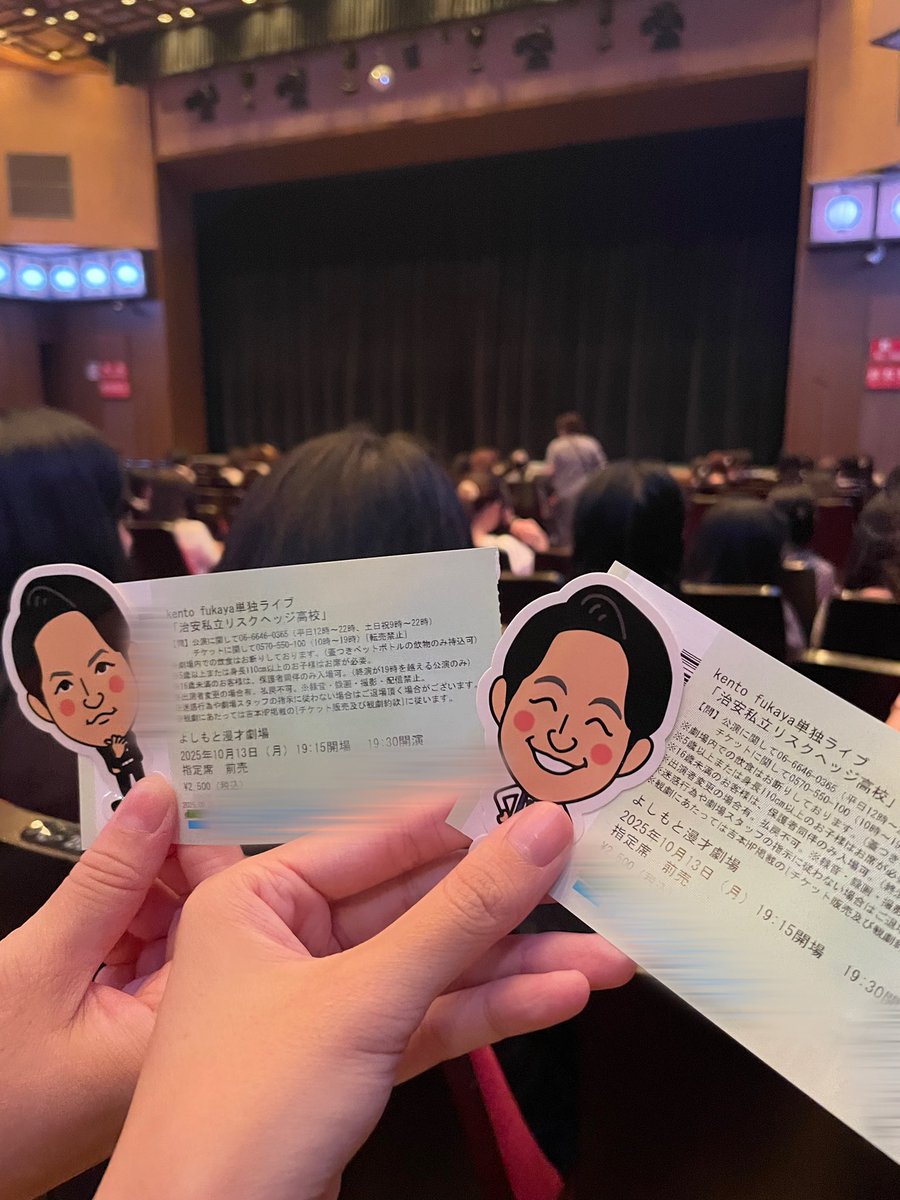 kento fukaya単独ライブ
「治安私立リスクヘッジ高校」
【問】公演に関して06-6646-0365（平日12時〜22時、土日祝9時〜22時）
チケットに関して0570-550-100（10時〜19時）［転売禁止］
※劇場内での飲食はお断りしております。（蓋つきペットボトルの飲物のみ持込可）
※5歳以上または身長110cm以上のお子様はお席が必要。
※16歳未満のお客様は、保護者同伴のみ入場可。（終演が19時を越える公演のみ）
※出演者変更の場合有。払戻不可。※録音・録画・撮影・配信禁止。
※迷惑行為や劇場スタッフの指示に従わない場合はご退場頂く場合がございます。
※観劇にあたっては吉本HP掲載の［チケット販売及び観劇約款］に従います。
よしもと漫才劇場
2025年10月13日（月） 19:15開場 19:30開演
指定席 前売
¥2,500（税込）
kento fukaya単独ライブ
「治安私立リスクヘッジ高校」
【問】公演に関して06-6646-0365（平日12時〜
チケットに関して0570-550-100（10時〜1
※劇場内での飲食はお断りしております。（蓋つ
※5歳以上または身長110cm以上のお子様はお席が必
※16歳未満のお客様は、保護者同伴のみ入場可。（終演
※出演者変更の場合有。払戻不可。※録音・録画・撮影
※迷惑行為や劇場スタッフの指示に従わない場合はご退場
※観劇にあたっては吉本HP掲載の［チケット販売及び観劇約
よしもと漫才劇場
2025年10月13日（月） 19:15開場 19:30
指定席 前売
¥2,500